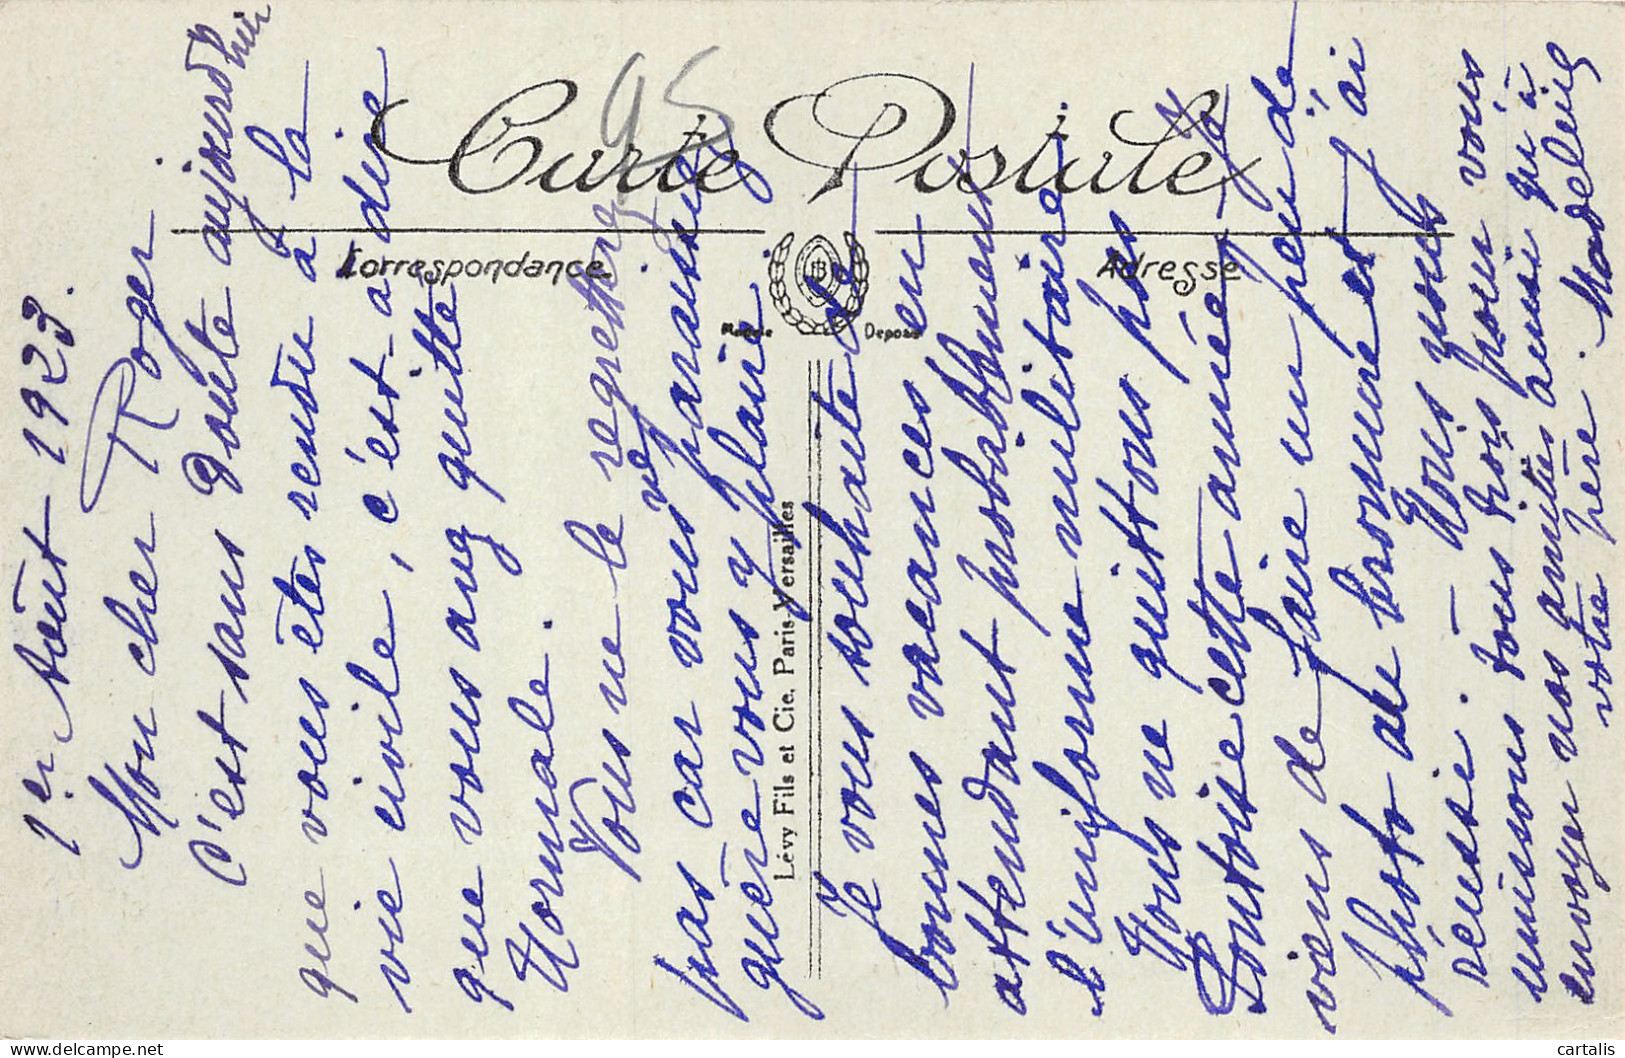 Carte Postale
95
Correspondance
Adresse
Modèle Déposé
Lévy Fils et Cie, Paris-Versailles
1er Août 1923.
Mon cher Roger
C'est sans doute aujourd'hui
que vous êtes rendu à la
vie civile, c'est-à-dire
que vous avez quitté
Normale.
Vous ne le regretterez
pas car vous ne paraissiez
guère vous y plaire.
Je vous souhaite de
bonnes vacances en
attendant probablement
l'uniforme militaire!
Nous ne quittons pas
Pontoise cette année. Je
viens de faire un peu de
photo au bromure et j'ai
réussi. - Nous nous
unissons tous trois pour vous
envoyer nos amitiés ainsi qu'à
votre père. Madeleine
cartalis